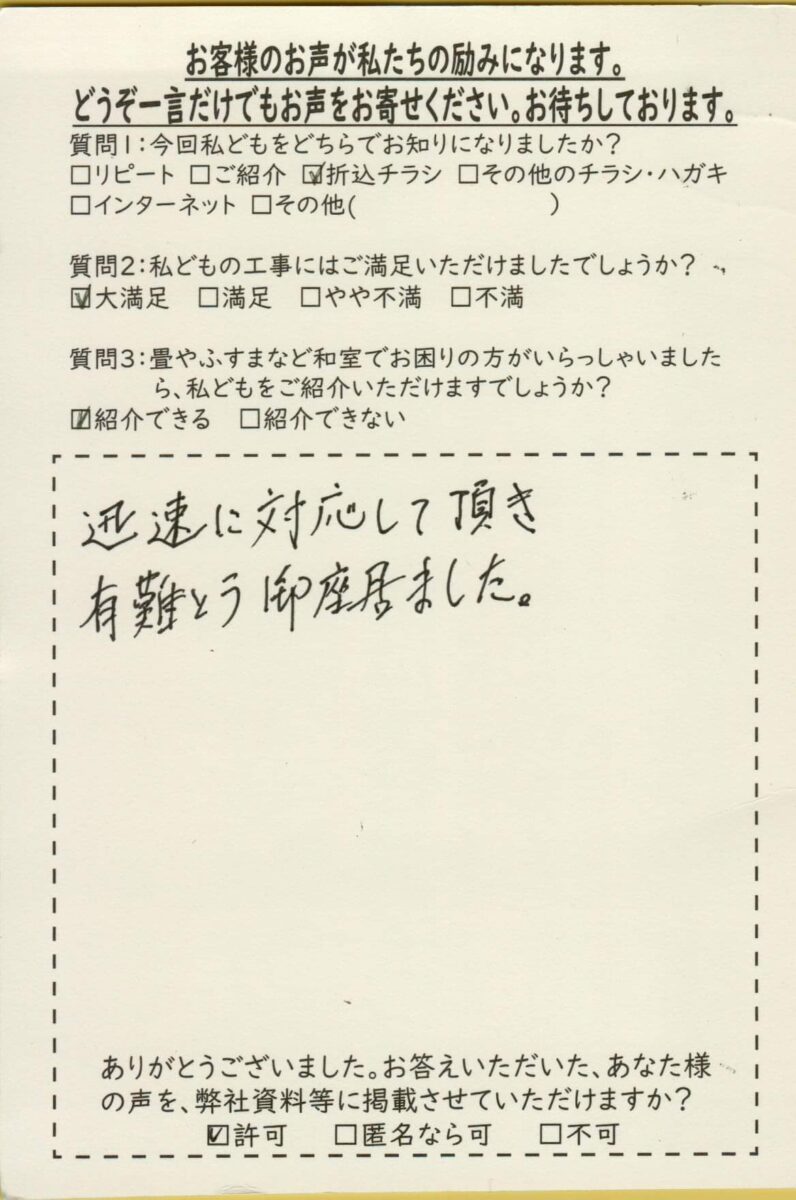 お客様のお声が私たちの励みになります。
どうぞ一言だけでもお声をお寄せください。お待ちしております。
質問1:今回私どもをどちらでお知りになりましたか?
□リピート □ご紹介 ☑折込チラシ □その他のチラシ・ハガキ
□インターネット □その他( )
質問2:私どもの工事にはご満足いただけましたでしょうか?
☑大満足 □満足 □やや不満 □不満
質問3:畳やふすまなど和室でお困りの方がいらっしゃいました
ら、私どもをご紹介いただけますでしょうか?
☑紹介できる □紹介できない
迅速に対応して頂き
有難とう御座居ました。
ありがとうございました。お答えいただいた、あなた様
の声を、弊社資料等に掲載させていただけますか?
☑許可 □匿名なら可 □不可